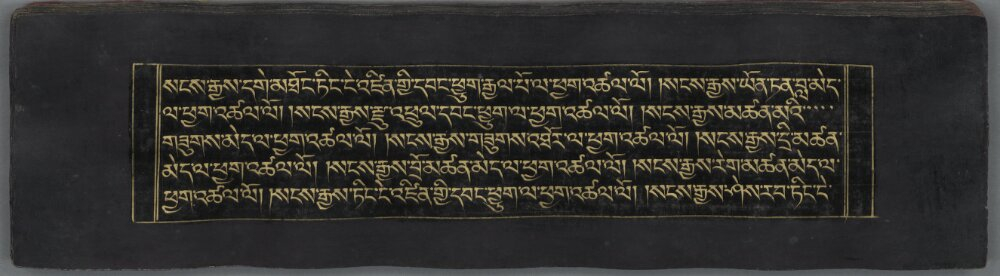 སངས་རྒྱས་དགེ་མཐོང་ཏིང་ངེ་འཛིན་གྱི་དབང་ཕྱུག་རྒྱལ་པོ་ལ་ཕྱག་འཚལ་ལོ། །སངས་རྒྱས་ཡོན་ཏན་བླ་མེད་
ལ་ཕྱག་འཚལ་ལོ། །སངས་རྒྱས་རྫུ་འཕྲུལ་དབང་ཕྱུག་ལ་ཕྱག་འཚལ་ལོ། །སངས་རྒྱས་མཚན་མའི་····
གཟུགས་མེད་ལ་ཕྱག་འཚལ་ལོ། །སངས་རྒྱས་གཟུགས་འཐོར་ལ་ཕྱག་འཚལ་ལོ། །སངས་རྒྱས་དྲི་མཚན་
མེད་ལ་ཕྱག་འཚལ་ལོ། །སངས་རྒྱས་དྲོ་མཚན་མེད་ལ་ཕྱག་འཚལ་ལོ། །སངས་རྒྱས་རེག་མཚན་མེད་ལ་
ཕྱག་འཚལ་ལོ། །སངས་རྒྱས་ཏིང་ངེ་འཛིན་གྱི་དབང་ཕྱུག་ལ་ཕྱག་འཚལ་ལོ། །སངས་རྒྱས་ཤེས་རབ་ཏིང་ངེ་